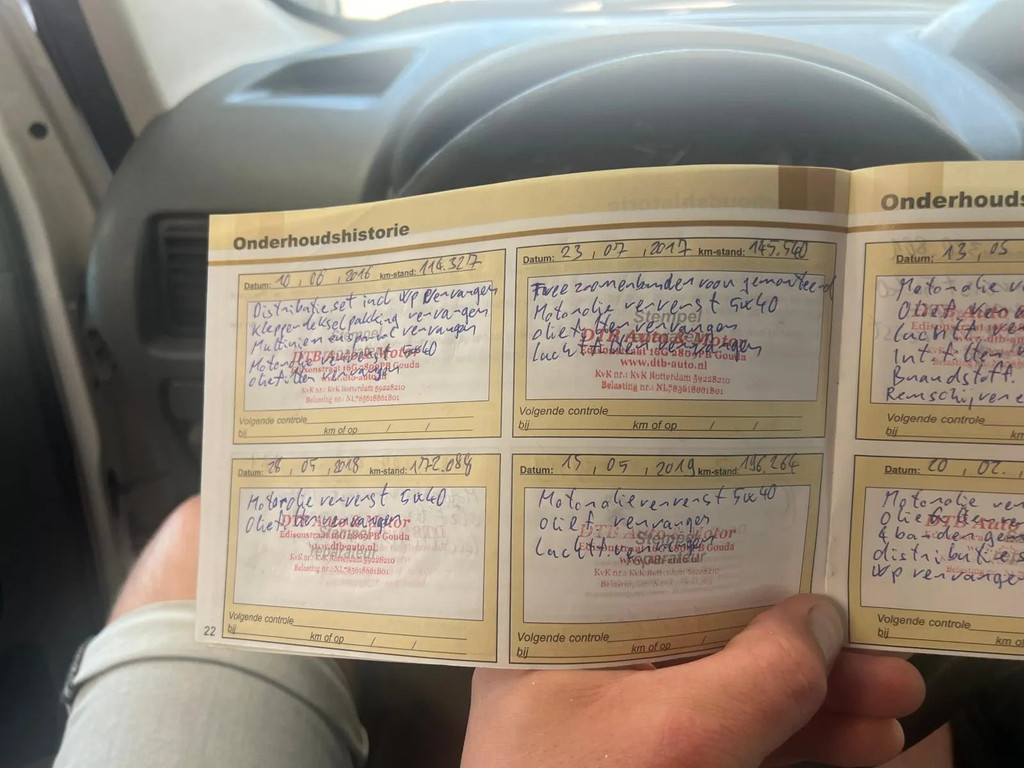 Onderhoudshistorie
Datum: 10 , 06 , 2016 km-stand: 114.327
Distributieset incl wp vervangen
kleppendekselpakking vervangen
Multiriem en vervangen
Motorolie ververst 5x40
oliefilter vervangen
Stempel
DTB Auto & Motor
Edisonstraat 16G 2809PB Gouda
www.dtb-auto.nl
KvK nr.: KvK Rotterdam 59228210
Belasting nr.: NL
Volgende controle
bij km of op / /
Datum: 23 , 07 , 2017 km-stand: 145.540
Twee zomerbanden voor gemonteerd
Motorolie ververst 5x40
oliefilter vervangen
Luchtfilter vervangen
Stempel
DTB Auto & Motor
Edisonstraat 16G 2809PB Gouda
www.dtb-auto.nl
KvK nr.: KvK Rotterdam 59228210
Belasting nr.: NL
Volgende controle
bij km of op / /
Datum: 28 , 05 , 2018 km-stand: 172.084
Motorolie ververst 5x40
Oliefilter vervangen
DTB Auto & Motor
Edisonstraat 16G 2809PB Gouda
Stempel
www.dtb-auto.nl
reparateur
KvK nr.: KvK Rotterdam 59228210
Belasting nr.: NL
Volgende controle
bij km of op / /
22
Datum: 15 , 05 , 2019 km-stand: 196.264
Motorolie ververst 5x40
olief. vervangen
Luchtf. vervangen
DTB Auto & Motor
Stempel
Edisonstraat 16G 2809PB Gouda
reparateur
KvK nr.: KvK Rotterdam 59228210
Volgende controle
bij km of op / /
Onderhouds
Datum: 13 , 05
Motorolie ve
Luchtf
Int. filter
Brandstoff.
Remschijven e
Volgende controle
bij
Datum: 20 , 02 ,
Motorolie ver
Oliefilter
DTB Auto
4 banden
distributies
wp vervange
Volgende controle
bij km o